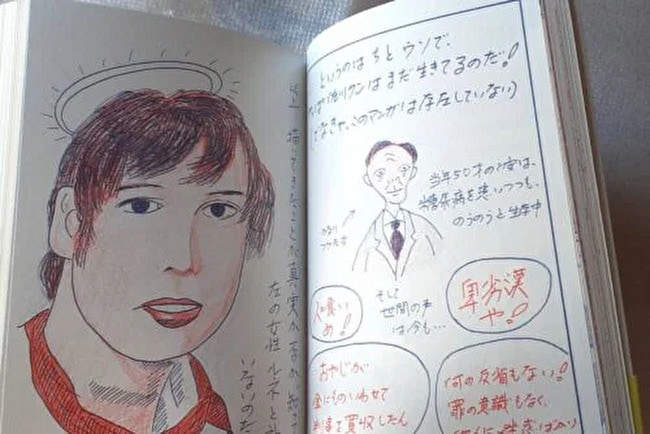 というのはちとウソで、
佐川クンはまだ生きてるのだ!
なきゃ、このマンガは存在していない)
当年50才の彼は、
糖尿病を患いつつも、
のうのうと生存中
かなり
フケた
そして
世間の声
は今も…
人喰い
め!
卑劣漢
や!
おやじが
金にものいわせて
判事を買収したん
何の反省もない!
罪の意識もなく、
描いてきたことが真実か否か、知って
左の女性ルネと
いないのだ